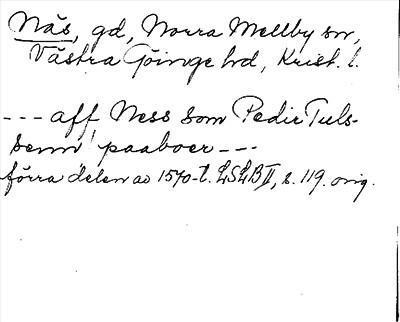 Näs, gd, Norra Mellby sn,
Västra Göinge hd, Krist. l.
--- aff Ness som Pedir Tuls-
senn paaboer ---
förra delen av 1570-t. LSLB II, s. 119. orig.